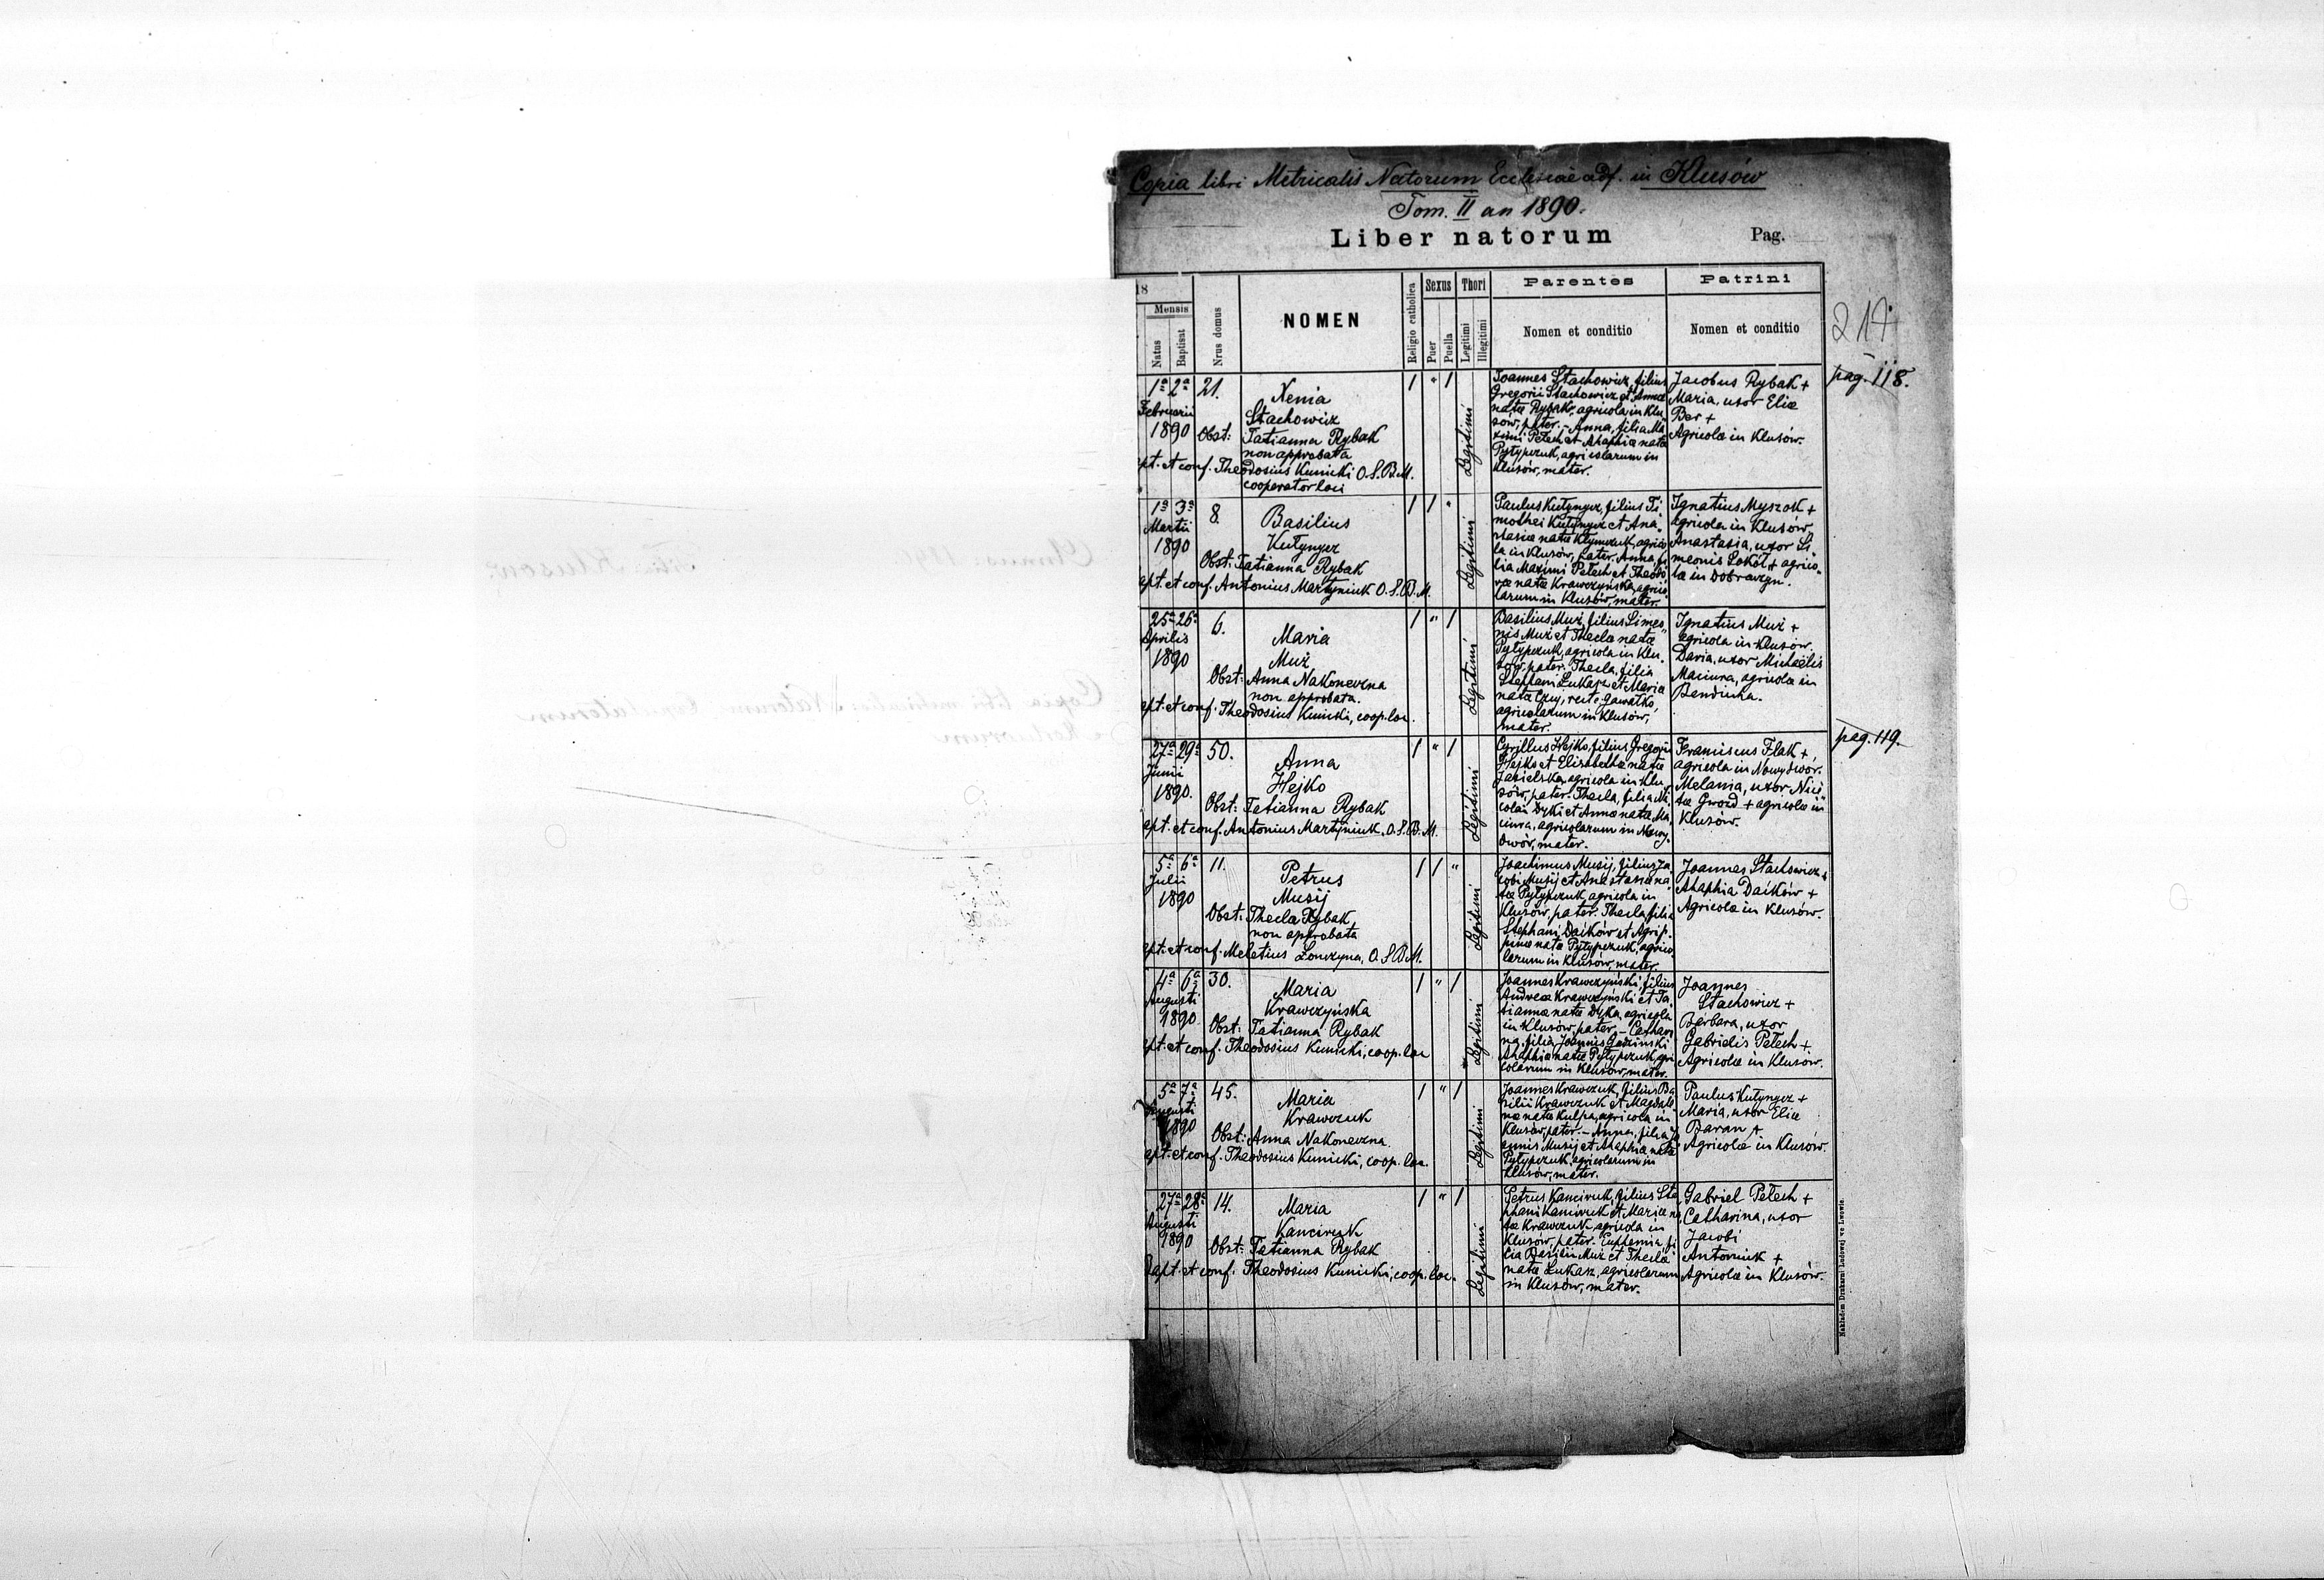 Copia libri Metricalis Natorum Ecclesiae adf. in Klusów
Tom. II an 1890.
Liber natorum Pag.
18
Mensis
Natus
Baptisat
Nrus domus
NOMEN
Religio catholica
Sexus
Puer
Puella
Thori
Legitimi
Illegitimi
Parentes
Nomen et conditio
Patrini
Nomen et conditio
217
pag. 118.
1a 2a
Februarii
1890
21.
Xenia
Stachowicz
Obst: Tatianna Rybak
non approbata
pt. et conf. Theodosius Kunicki O.S.B.M.
cooperator loci
1 " 1
Legitimi
Joannes Stachowicz, filius
Gregorii Stachowicz et Annae
natae Rybak, agricola in Klu
sów, pater. - Anna, filia Ma
ximi Pełech et Ahaphiae natae
Pyłypczuk, agricolarum in
Klusów, mater.
Jacobus Rybak +
Maria, uxor Eliae
Ber +
Agricolae in Klusów.
1a 3a
Martii
1890
8.
Basilius
Kutynycz
Obst: Tatianna Rybak
apt. et conf. Antonius Martyniuk O.S.B.M.
1 1 "
Legitimi
Paulus Kutynycz, filius Ti
mothei Kutynycz et Ana
stasiae natae Kłymczuk, agrico
la in Klusów, pater. Anna, fi
lia Maximi Pełech et Theodo
rae natae Krawczyńska, agrico
larum in Klusów, mater.
Ignatius Myszok +
agricola in Klusów
Anastasia, uxor Si
meonis Sokół + agrico
lae in Dobraczyn.
25a 26a
Aprilis
1890
6.
Maria
Muż
Obst: Anna Nakoneczna
non approbata.
apt. et conf. Theodosius Kunicki, coop. loc.
1 " 1
Legitimi
Basilius Muż, filius Simeo
nis Muż et Theclae natae
Pyłypczuk, agricola in Klu
sów, pater. Thecla, filia
Stephani Łukasz et Mariae
natae Czuj, recte Gawałko,
agricolarum in Klusów,
mater.
Ignatius Muż +
agricola in Klusów.
Daria, uxor Michaëlis
Maciura, agricolae in
Bendiuha.
pag. 119.
27a 29a
Junii
1890.
50.
Anna
Hejko
Obst: Tatianna Rybak
apt. et conf. Antonius Martyniuk, O.S.B.M.
1 " 1
Legitimi
Cyrillus Hejko, filius Gregorii
Hejko et Elisabethae natae
Jasielska, agricola in Klu
sów, pater. Thecla, filia Ni
colai Dyki et Annae natae Ma
ciura, agricolarum in Nowy
Dwór, mater.
Franciscus Flak +
agricola in Nowy Dwór.
Melania, uxor Nici
tae Gwozd + agricolae in
Klusów.
5a 6a
Julii
1890
11.
Petrus
Musij
Obst: Thecla Rybak
non approbata
pt. et conf. Meletius Łonczyna, O.S.B.M.
1 1 "
Legitimi
Joachimus Musij, filius Ja
cobi Musij et Anastasiae na
tae Pyłypczuk, agricola in
Klusów, pater. Thecla filia
Stephani Daików et Agrip
pinae natae Pyłypczuk, agrico
larum in Klusów, mater.
Joannes Stachowicz +
Ahaphia Daików +
Agricolae in Klusów.
4a 6a
Augusti
1890
30.
Maria
Krawczyńska
Obst: Tatianna Rybak
pt. et conf. Theodosius Kunicki, coop. loc
1 " 1
Legitimi
Joannes Krawczyński, filius
Andreae Krawczyński et Ta
tiannae natae Dyka, agricola
in Klusów, pater. - Cathari
na, filia Joannis
Ahaphiae natae Pyłypczuk, agri
colarum in Klusów, mater.
Joannes
Stachowicz +
Barbara, uxor
Gabrielis Pełech +
Agricolae in Klusów.
5a 7a
Augusti
1890
45.
Maria
Krawczuk
Obst: Anna Nakoneczna
apt. et conf. Theodosius Kunicki, coop. loc.
1 " 1
Legitimi
Joannes Krawczuk, filius Ba
silii Krawczuk et Magdale
nae natae Kulpa, agricola in
Klusów, pater. - Anna, filia Jo
annis Musij et Ahaphiae natae
Pyłypczuk, agricolarum in
Klusów, mater.
Paulus Kutynycz +
Maria, uxor Eliae
Baran +
Agricolae in Klusów.
27a 28a
Augusti
1890
14.
Maria
Kanciruk
Obst: Tatianna Rybak
Bapt. et conf. Theodosius Kunicki, coop. loc.
1 " 1
Legitimi
Petrus Kanciruk, filius Ste
phani Kanciruk et Mariae na
tae Krawczuk, agricola in
Klusów, pater. Euphemia fi
lia Basilii Muż et Theclae
natae Łukasz, agricolarum
in Klusów, mater.
Gabriel Pełech +
Catharina, uxor
Jacobi
Antoniuk +
Agricolae in Klusów.
Nakładem Drukarni Ludowej we Lwowie.